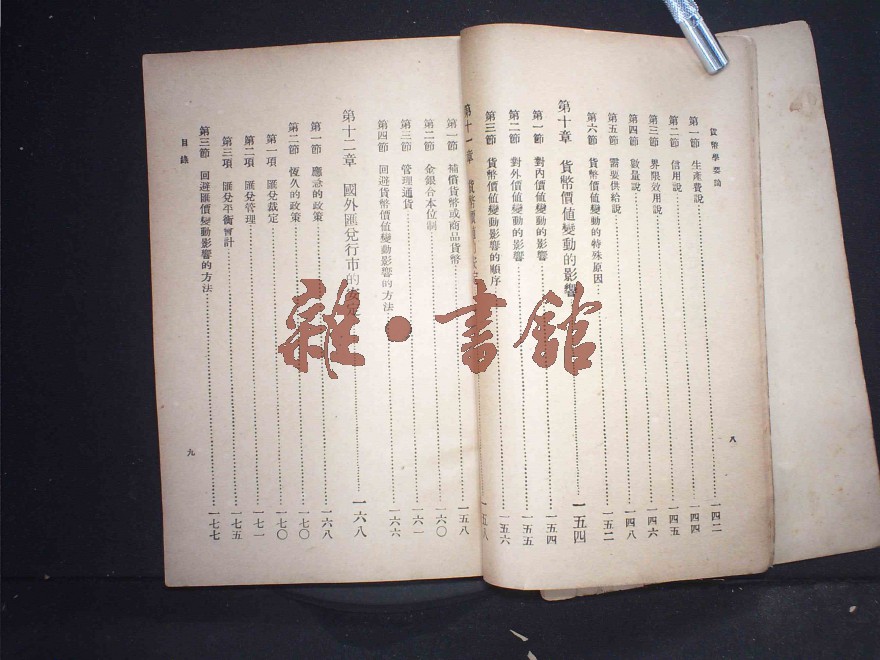 貨幣學要論
第一節 生產費說 一四二
第二節 信用說 一四四
第三節 界限效用說 一四五
第四節 數量說 一四六
第五節 需要供給說 一四八
第六節 貨幣價値變動的特殊原因 一五二
第十章 貨幣價値變動的影響 一五四
第一節 對內價値變動的影響 一五四
第二節 對外價値變動的影響 一五五
第三節 貨幣價値變動影響的順序 一五六
八
第十一章 貨幣價値 一五八
第一節 補償貨幣或商品貨幣 一五八
第二節 金銀合本位制 一六〇
第三節 管理通貨 一六一
第四節 回避貨幣價値變動影響的方法 一六六
第十二章 國外匯兌行市的安定 一六八
第一節 應急的政策 一六八
第二節 恆久的政策 一七〇
第一項 匯兌裁定 一七〇
第二項 匯兌管理 一七一
第三項 匯兌平衡會計 一七五
第三節 回避匯價變動影響的方法 一七七
目錄
九
雜·書館